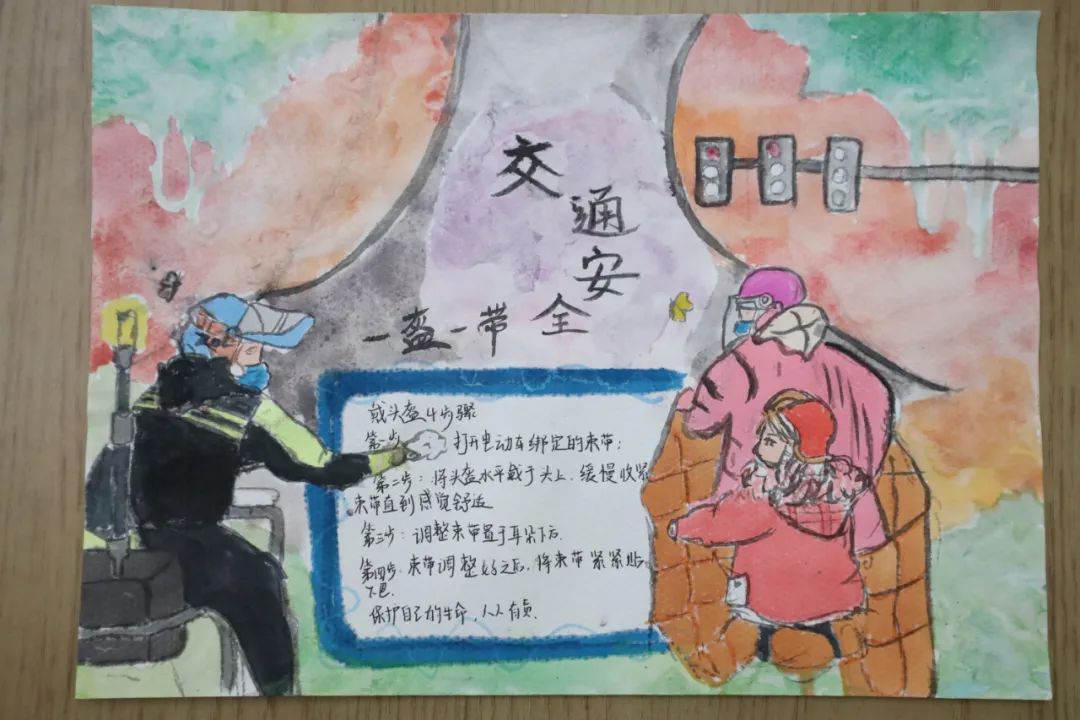 交通安全
一盔一带
戴头盔4步骤
第一步 打开电动车绑定的束带:
第二步:将头盔水平戴于头上,缓慢收紧
束带直到感觉舒适
第三步:调整束带置于耳朵下方.
第四步.束带调整好之后,将束带紧紧贴
下巴.
保护自己的生命,人人有责.